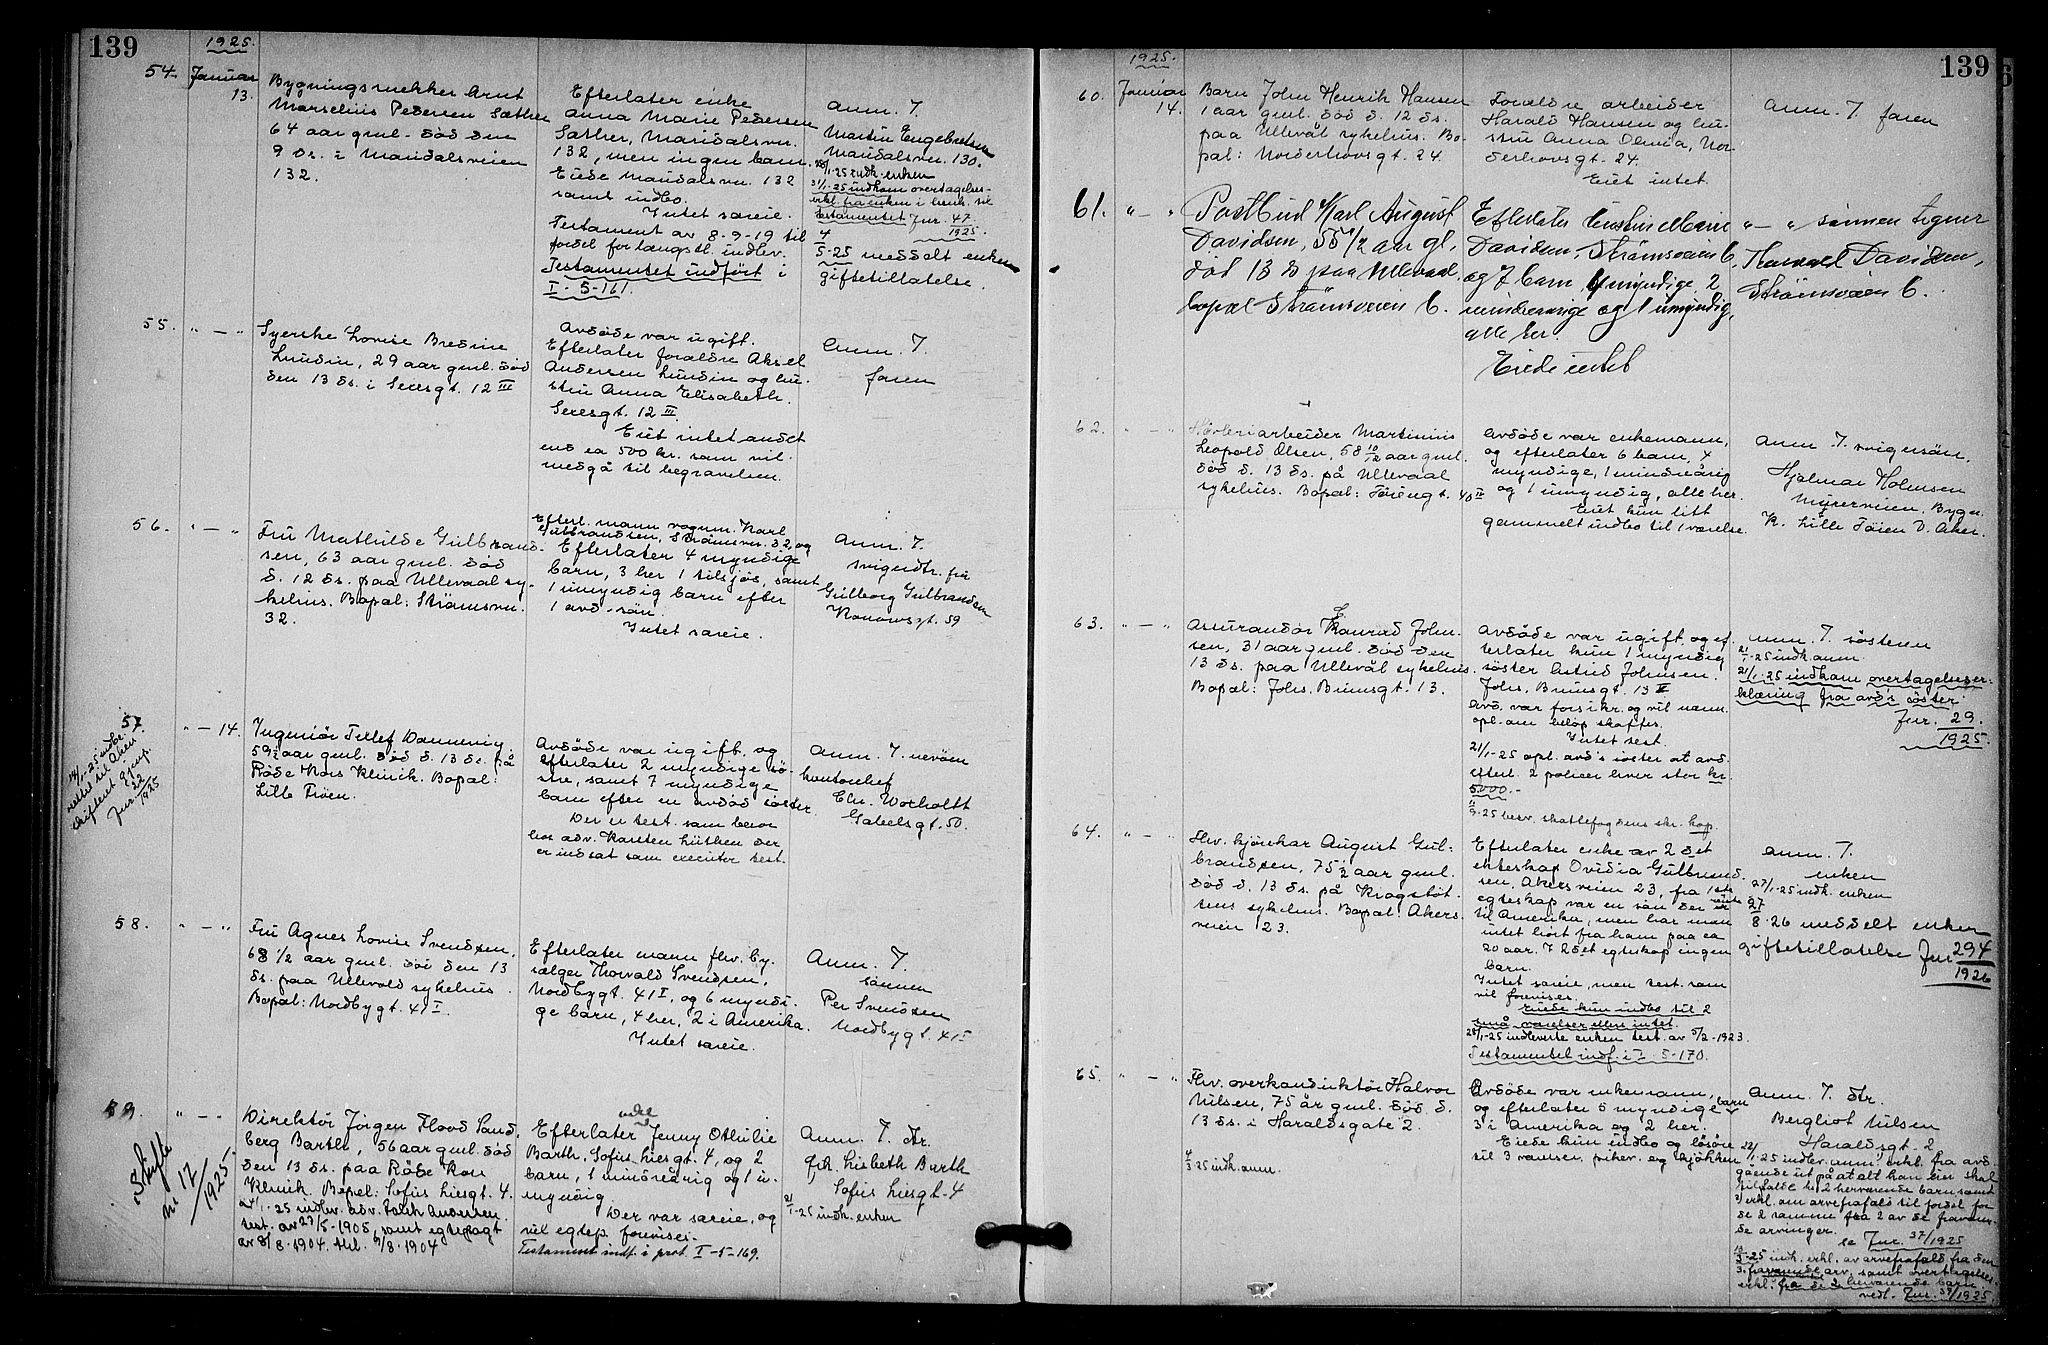 139
1925.
54. Januar 13.
Bygningssnekker Arnt
Marselius Pedersen Sæther
64 aar gml. død den
9 ds. i Maridalsveien
132.
Efterlater enke
Anna Marie Pedersen
Sæther, Maridalsvn.
132, men ingen barn.
Eiede Maridalsvn. 132
samt indbo.
Intet særeie.
Testament av 8-9-19 til
fordel for længstl. indlev.
Testamentet indført i
I-5-161.
Anm. T.
Martin Engebretsen
Maridalsvn. 130.
/1-25 indk. enken
31/1-25 indkom overtagelses-
erkl. fra enken i henh. til
testamentet Jnr. 47
1925.
4/5-25 meddelt enken
giftetillatelse.
55. " — "
Syerske Lovise Bredine
Lundin, 29 aar gml. død
den 13 ds. i Seresgt. 12 III
Avdøde var ugift.
Efterlater forældre Aksel
Andersen Lundin og hu-
stru Anna Elisabeth.
Seresgt. 12 III.
Eiet intet andet
end ca 500 kr. som vil
medgå til begravelsen.
Anm. T.
faren
56. " — "
Fru Mathilde Gulbrand-
sen, 63 aar gml. død
d. 12 ds. paa Ullevaal sy-
kehus. Bopæl: Strømsvn.
32.
Efterl. mann vognm. Karl
Gulbrandsen, Strømsvn. 32, og
Efterlater 4 myndige
barn, 3 her 1 tilsjøs, samt
1 umyndig barn efter
1 avd. søn.
Intet særeie.
Anm. T.
svigerdtr. fru
Gulborg Gulbrandsen
Konowsgt. 59
57 " — 14.
14/1-25 indber.
sendt til Aker
skifterett
Jnr. 22
1925
Ingeniør Detlef Dannevig
59½ aar gml. død d. 13 ds. på
Røde Kors Klinik. Bopæl:
Lille Frøen.
Avdøde var ugift, og
efterlater 2 myndige sø-
stre, samt 7 myndige
barn efter en avdød søster.
Der er test. som beror
hos adv. Karsten Lüthken der
er indsat som executor test.
Anm. T. nevøen
kontorchef
Chr. Worholtt
Gabelsgt. 50.
58. " — "
Fru Agnes Lovise Svendsen,
68 1/2 aar gml. død den 13
ds. paa Ullevold sykehus.
Bopæl: Nordbygt. 41 I.
Efterlater mann fhv. by-
selger Thorvald Svendsen,
Nordbygt. 41 I, og 6 myndi-
ge barn, 4 her, 2 i Amerika.
Intet særeie.
Anm. T.
sønnen
Per Svendsen
Nordbygt. 41 I
59. " — "
Skifte
nr. 12/1925.
Direktør Jørgen Flood Sand-
berg Barth, 56 aar gml. død
den 13 ds. paa Røde Kors
Klinik. Bopæl: Sofus Liesgt. 4.
24/1-25 indlev. adv. Falck Andersen
test. av 27/5-1905, samt egtepagt
av 8/8-1904. tinl. 9/8-1904
enke
Efterlater Jenny Othilie
Barth, Sofus Liesgt. 4, og 2
barn, 1 mindreårig og 1 u-
myndig.
Der var særeie, og
vil egtep. forevises.
Testament indf. i prot I-5-169.
Anm. T. dtr.
frk. Lisbeth Barth
Sofus Liesgt. 4
21/1-25 indk. enken
139
1925.
60. Januar 14.
Barn John Henrik Hansen
1 aar gml. død d. 12 ds.
paa Ullevål sykehus. Bo-
pæl: Norderhovsgt. 24.
Forældre arbeider
Harald Hansen og hu-
stru Anna Olivia, Nor-
derhovsgt. 24.
Eiet intet.
Anm. T. faren
61. " — "
Postbud Karl August
Davidsen, 55 1/2 aar gl,
død 13 ds paa Ullevaal.
bopæl Strømsveien 6.
Efterlater hustru Marie
Davidsen, Strømsveien 6,
og 7 barn, 4 myndige, 2
mindreaarige og 1 umyndig,
alle her.
Eiede intet
" — " sønnen Ragnar
Davidsen,
Strømsveien 6.
62. " — "
Høvleriarbeider Martinius
Leopold Olsen, 58 10/12 aar gml.
død d. 13 ds. på Ullevaal
sykehus. Bopæl: Tøiengt. 40 II
Avdøde var enkemann,
og efterlater 6 barn, 4
myndige, 1 mindreårig
og 1 umyndig, alle her.
Eiet kun litt
gammelt indbo til 1 værelse.
Anm. T. svigersøn.
Hjalmar Holmsen
Myrerveien, Bygn.
K. Lille Tøien D. Aker.
63. " — "
Assurandør E Konrad John-
sen, 31 aar gml. død den
13 ds. paa Ullevål sykehus.
Bopæl: Johs. Brunsgt. 13.
Avdøde var ugift og ef-
terlater kun 1 myndig
søster Astrid Johnsen.
Johs. Brunsgt. 13 II
Avd. var forsikr. og vil nærm.
opl. om beløp skaffes.
Intet test.
21/1-25 opl. avd's søster at avd.
efterl. 2 policer hver stor kr.
5000.-
-25 besv. skattefogdens skr. kop.
Anm. T. søsteren
21/1-25 indk. anm.
21/1-25 indkom overtagelseser-
klæring fra avd's søster
Jnr. 29.
1925.
64. " — "
Fhv. kjørekar August Gul-
brandsen, 75½ aar gml.
død d. 13 ds. på Kragstøt-
tens sykehus. Bopæl: Akers-
veien 23.
Efterlater enke av 2 det
ekteskap Ovidia Gulbrand-
sen, Akersveien 23, fra 1ste
egteskap var en søn der reiste
til Amerika, men har man
intet hørt fra ham paa ca
20 aar. I 2det egteskap ingen
barn.
Intet særeie, men test. som
vil forevises.
Eiede kun indbo til 2
små værelser ellers intet.
28/1-25 indleverte enken test. av 5/2-1923.
Testamentet indf. i I-5-170.
Anm. T.
enken
27/1-25 indk. enken
27/8-26 meddelt enken
giftetillatelse Jnr 294
1926
65. " — "
Fhv. overkonduktør Halvor
Nilsen, 75 år gml. død d.
13 ds. i Haraldsgate 2.
4/3-25 indk. anm.
Avdøde var enkemann,
og efterlater 5 myndige barn
3 i Amerika og 2 her.
Eiede kun indbo og løsøre
til 3 værelser, pikev. og kjøkken
Anm. T. dtr.
Bergliot Nilsen
Haraldsgt. 2
22/1-25 indlev. anm. erkl. fra avd.
gående ut på at alt han eier skal
tilfalde de 2 herværende barn samt
erkl. om arveafald til fordel for
de 2 samme fra 2 av de fraværen-
de arvinger.
se Jnr. 37/1925
-25 indk. erkl. av arveafald fra den
3. fraværende arv. samt overtagelses-
erkl. fra de 2 herværende barn.
vedl. Jnr. 37/1925.